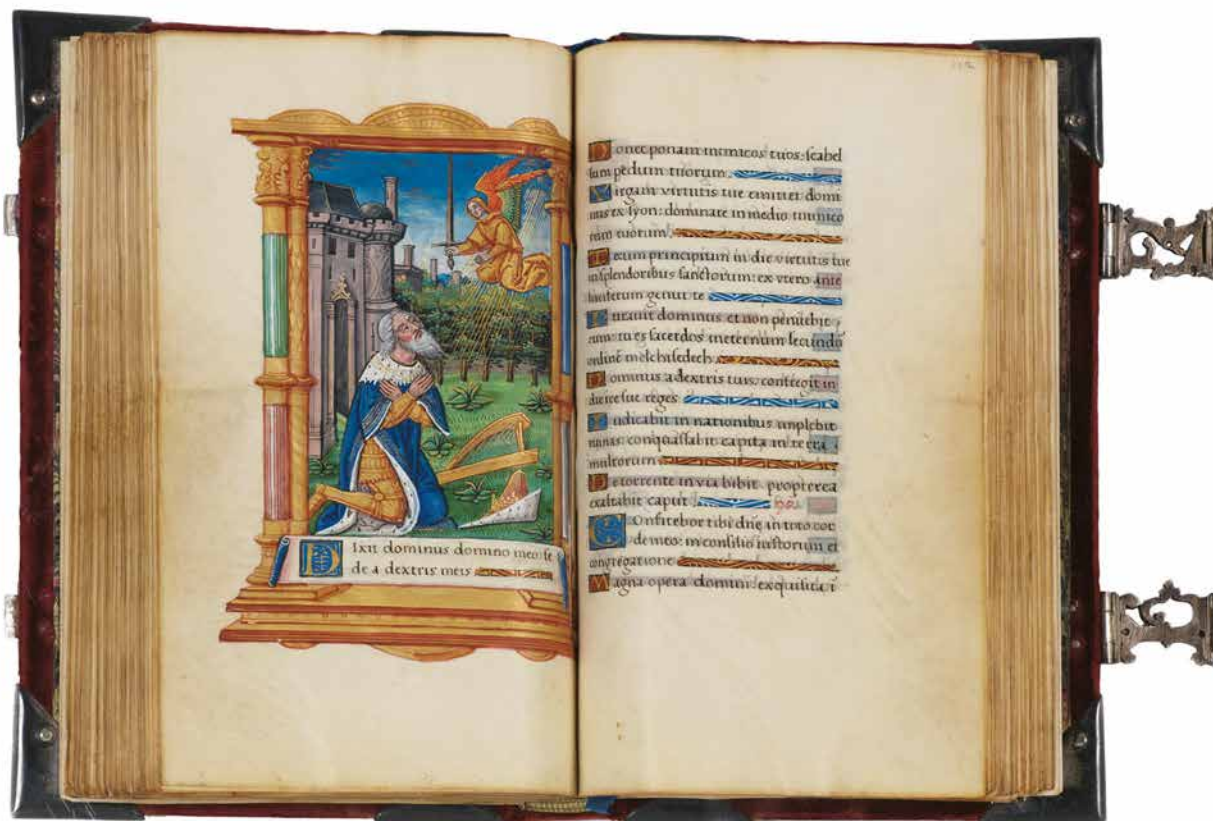 DIxit dominus domino meo: se
de a dextris meis
Donec ponam inimicos tuos: scabel
lum pedum tuorum.
Virgam virtutis tue emittet domi
nus ex syon: dominare in medio inimico
rum tuorum.
Tecum principium in die virtutis tue
in splendoribus sanctorum: ex vtero ante
luciferum genui te
Iurauit dominus et non penitebit
eum: tu es sacerdos ineternum secundū
ordinē melchisedech.
Dominus a dextris tuis: confregit in
die ire sue reges
Iudicabit in nationibus implebit
ruinas: conquassabit capita in terra
multorum
De torrente in via bibit propterea
exaltabit caput.
COnfitebor tibi dn̄e in toto cor
de meo: in consilio iustorum et
congregatione
Magna opera domini: exquisita i